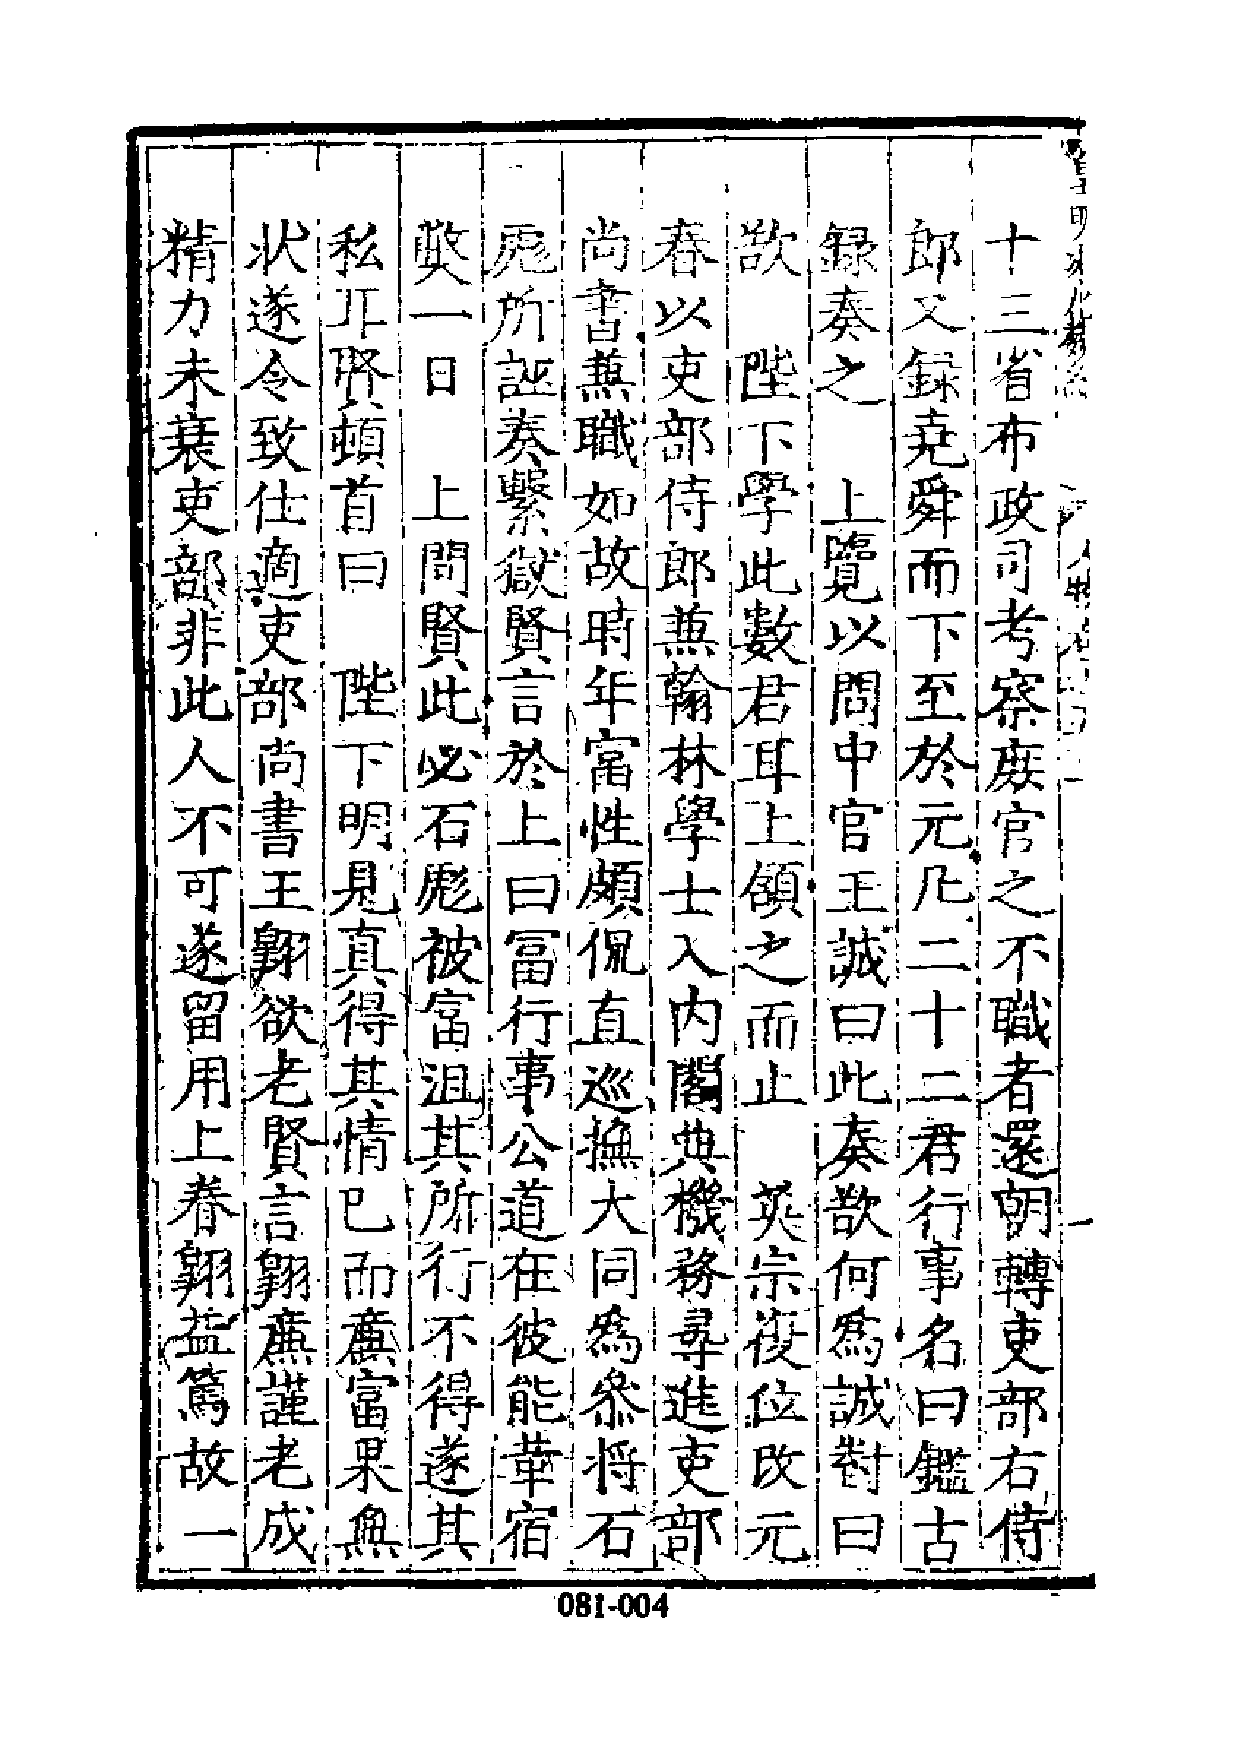 十三省布政司考察庶官之不職者還朝轉吏部右侍
郎又録堯舜而下至於元凡二十二君行事名曰鑑古
録奏之　上覽以問中官王誠曰此奏欲何為誠對曰
欲　陛下學此數君耳上頷之而止　英宗復位改元
春以吏部侍郎兼翰林學士入内閣典機務尋進吏部
尚書兼職如故時年富性頗侃直巡撫大同為叅将石
彪所誣奏繫獄賢言於上曰富行事公道在彼能革宿
弊一日　上問賢此必石彪被富沮其所行不得遂其
私耳賢頓首曰　陛下明見真得其情已而廉富果無
狀遂令致仕適吏部尚書王翺欲老賢言翺廉謹老成
精力未衰吏部非此人不可遂留用上眷翺益篤故一
081-004